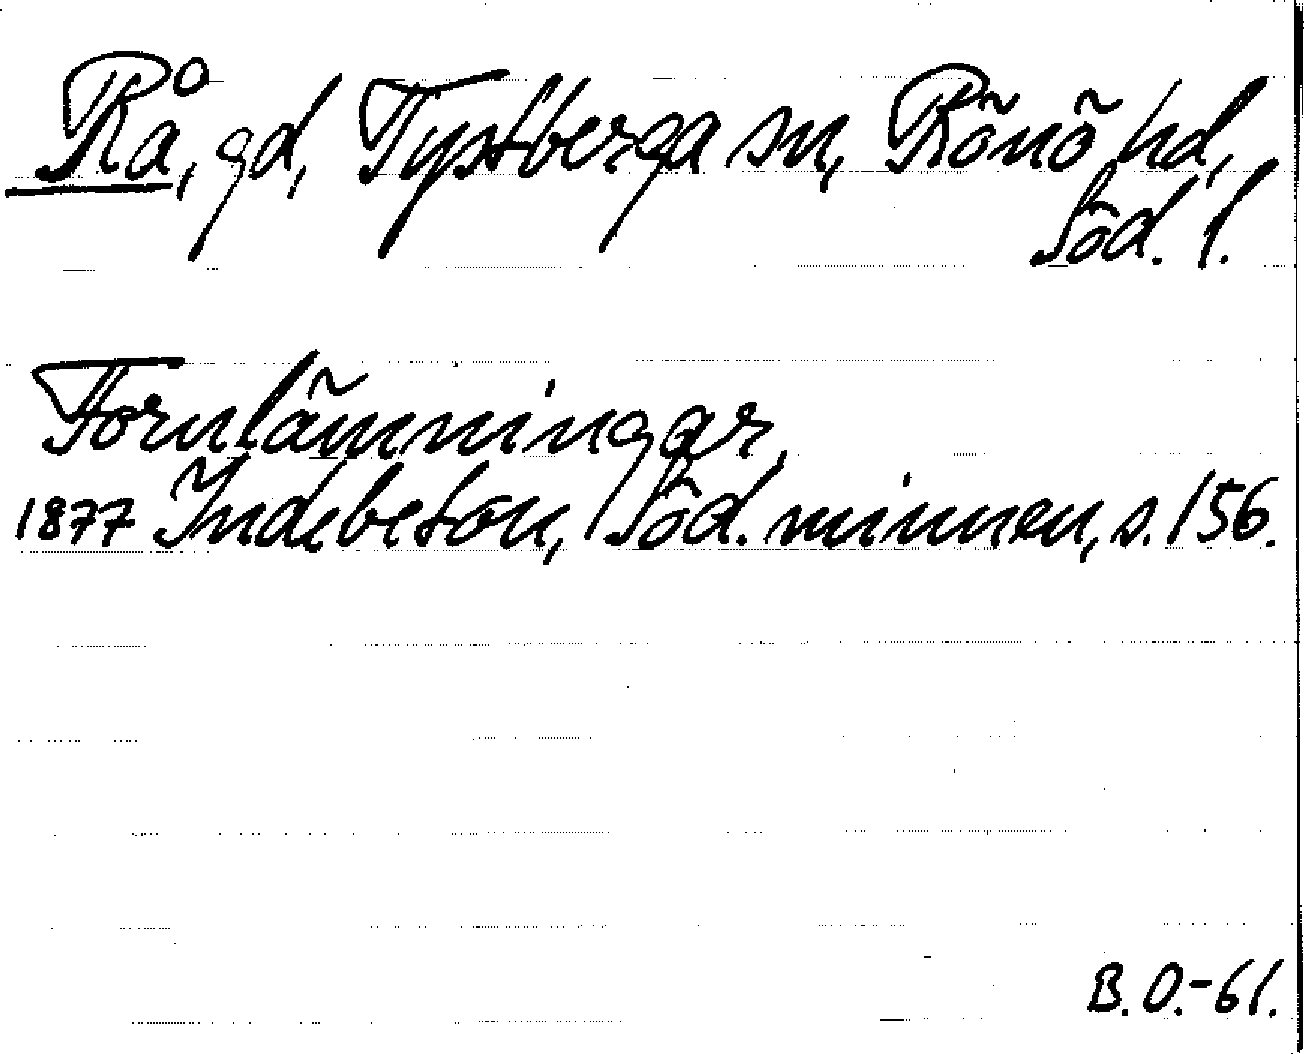 Rå, gd, Tystberga sn, Rönö hd,
Söd. l.
Fornlämningar,
1877 Indebetou, Söd. minnen, s. 156.
B. O.-61.